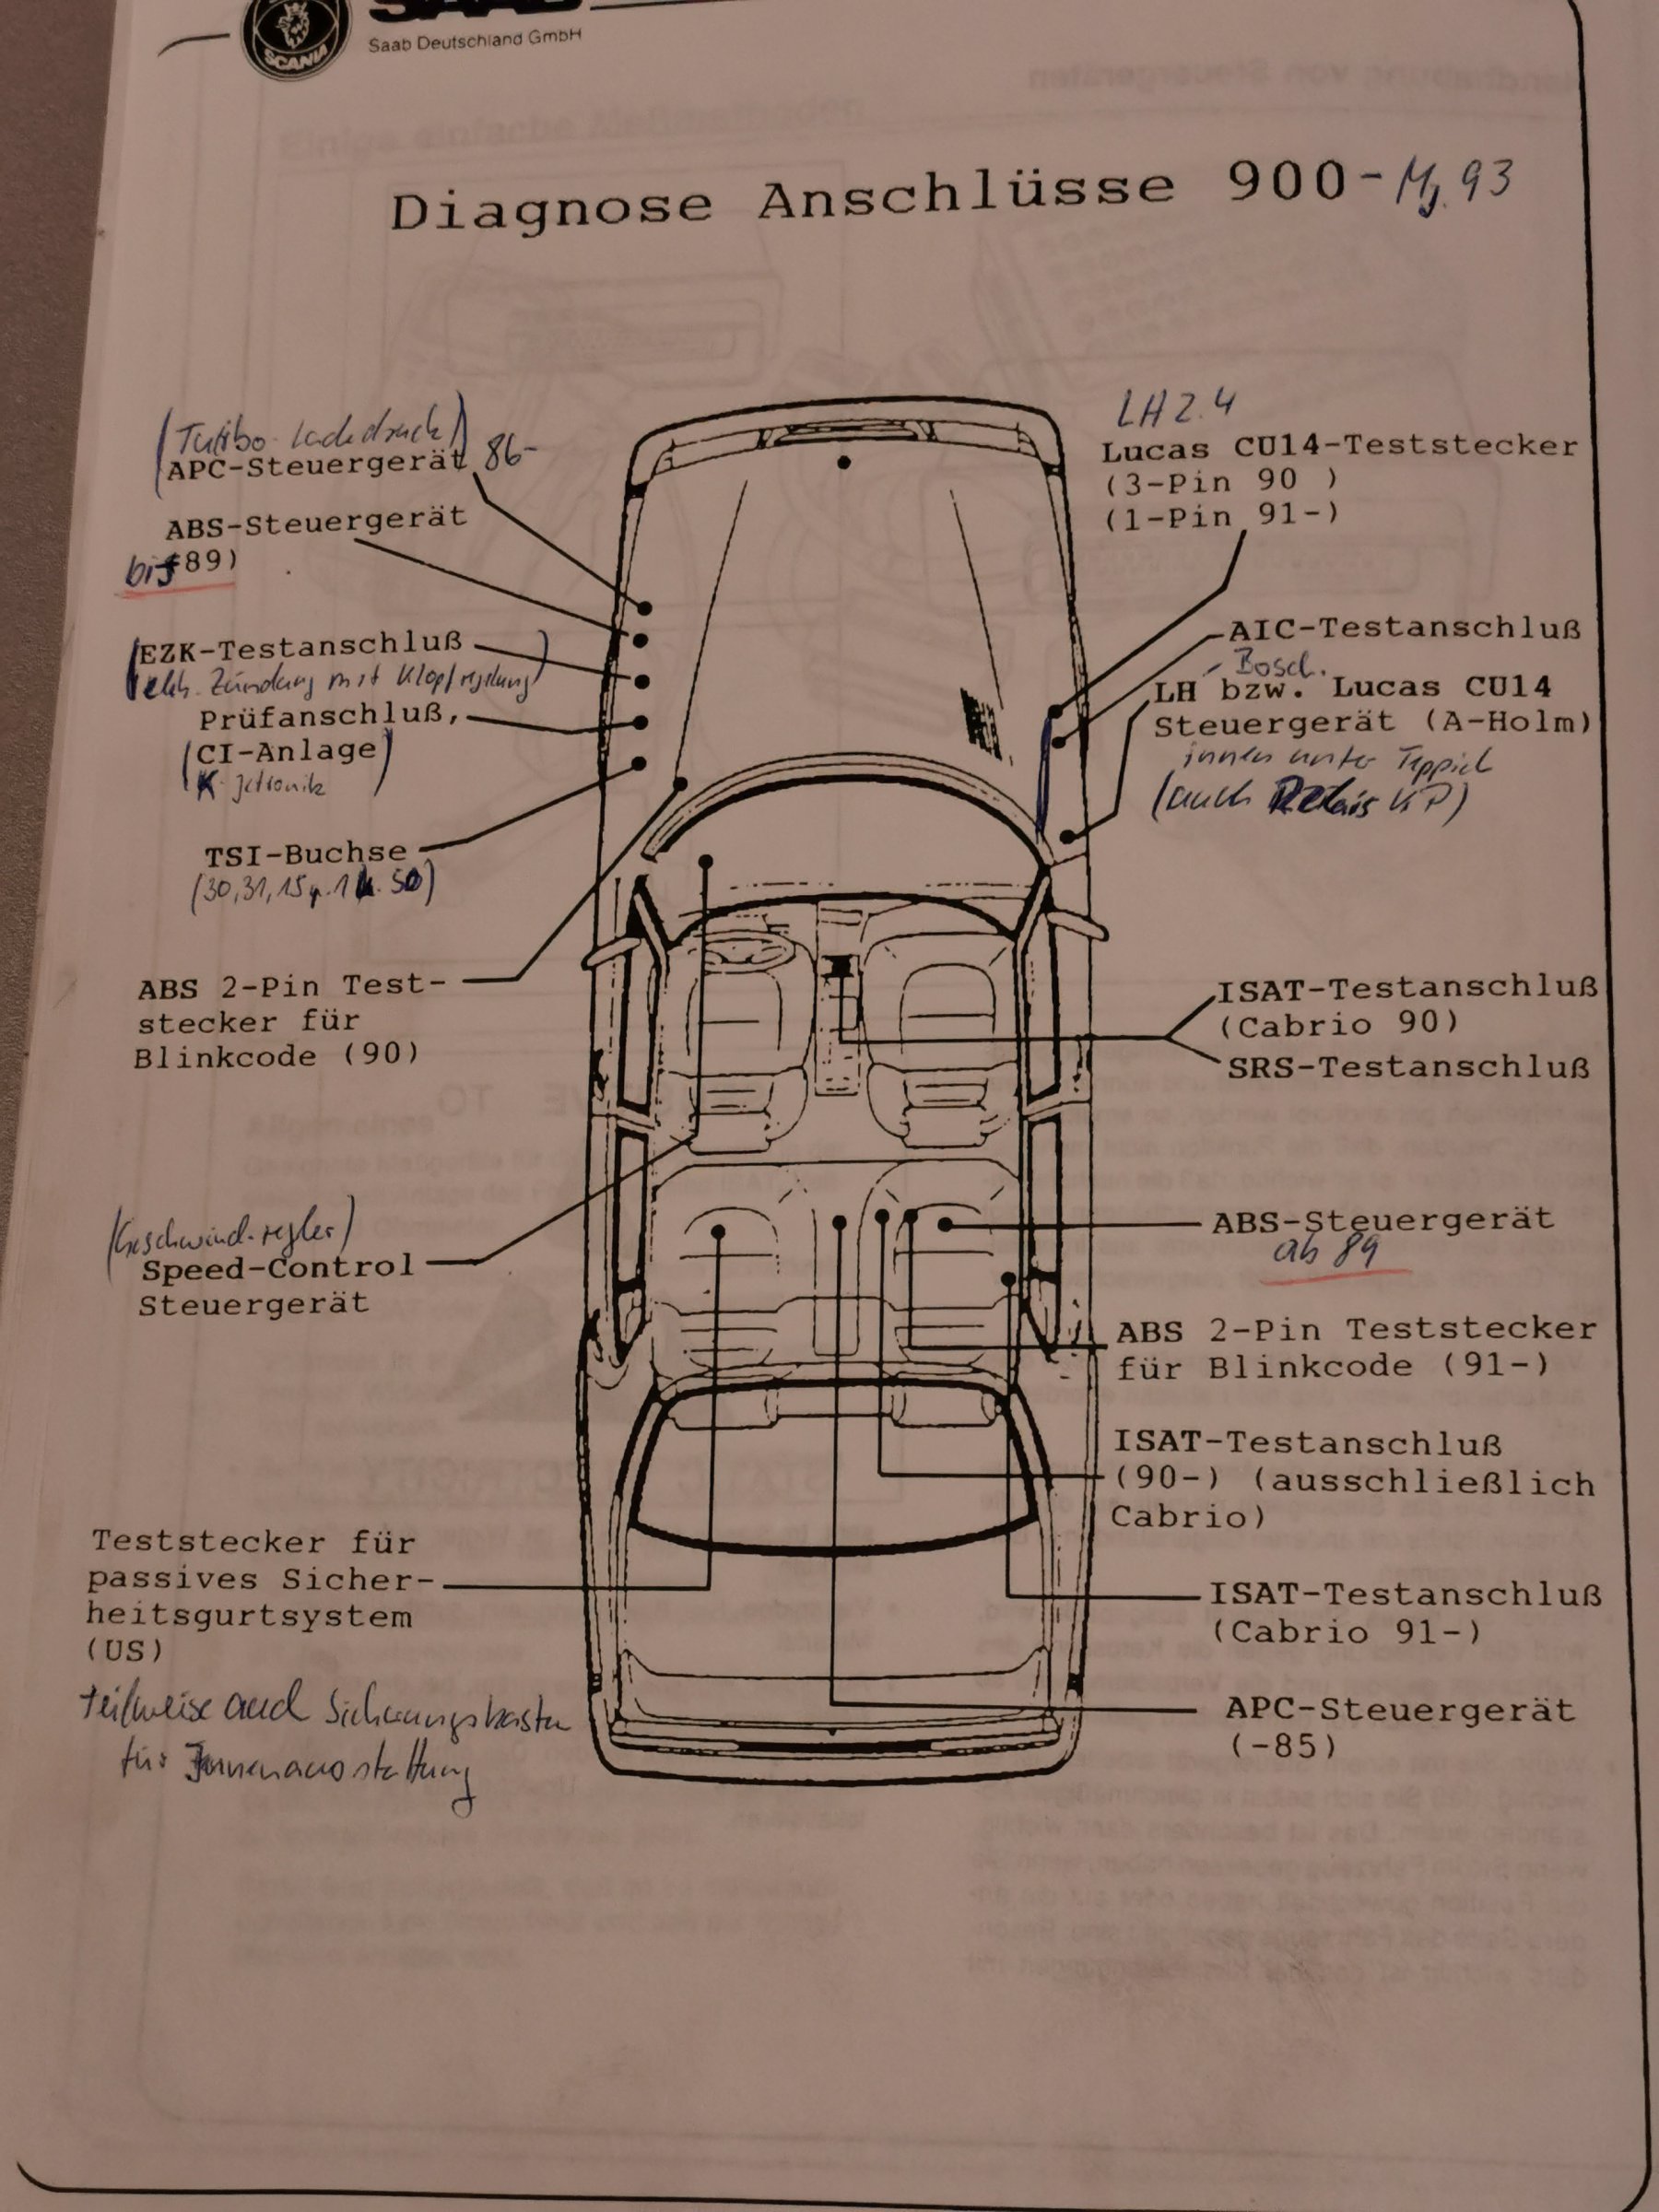 SAAB
SCANIA
Saab Deutschland GmbH
Diagnose Anschlüsse 900 - Mj. 93
(Turbo Ladedruck)
APC-Steuergerät 86-
ABS-Steuergerät
bis 89)
(EZK-Testanschluß
elek. Zündung mit Klopfregelung)
Prüfanschluß,
(CI-Anlage)
K-Jetronik
TSI-Buchse
(30, 31, 15, 1 50)
ABS 2-Pin Test-
stecker für
Blinkcode (90)
(Geschwind.regler)
Speed-Control
Steuergerät
Teststecker für
passives Sicher-
heitsgurtsystem
(US)
teilweise auch Sicherungskasten
für Innenausstattung
LH 2.4
Lucas CU14-Teststecker
(3-Pin 90 )
(1-Pin 91-)
AIC-Testanschluß
Bosch.
LH bzw. Lucas CU14
Steuergerät (A-Holm)
innen unter Teppich
(auch Relais KP)
ISAT-Testanschluß
(Cabrio 90)
SRS-Testanschluß
ABS-Steuergerät
ab 89
ABS 2-Pin Teststecker
für Blinkcode (91-)
ISAT-Testanschluß
(90-) (ausschließlich
Cabrio)
ISAT-Testanschluß
(Cabrio 91-)
APC-Steuergerät
(-85)